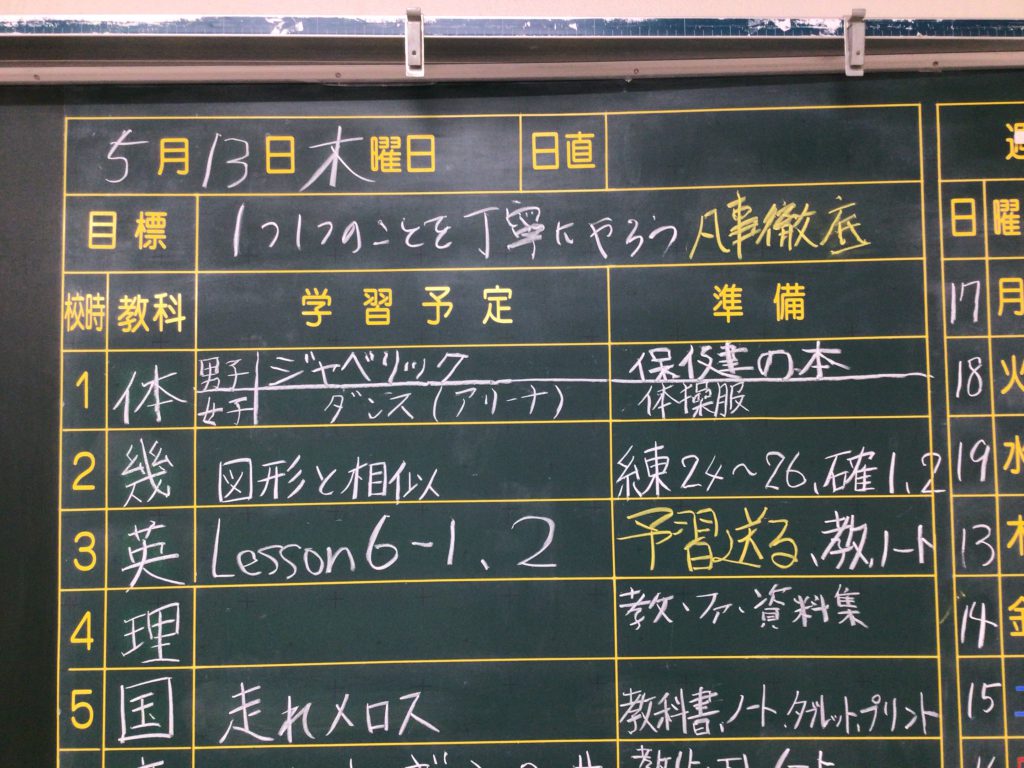 5月13日木曜日 日直
目標 1つ1つのことを丁寧にやろう 凡事徹底
校時 教科 学習予定 準備
1 体 男子 ジャベリック 保健の本
女子 ダンス(アリーナ) 体操服
2 幾 図形と相似 練24〜26、確1、2
3 英 Lesson6-1、2 予習送る、教、ノート
4 理 教・ファ・資料集
5 国 走れメロス 教科書、ノート、タブレット、プリント
日 曜
17 月
18 火
19 水
13 木
14 金
15 土